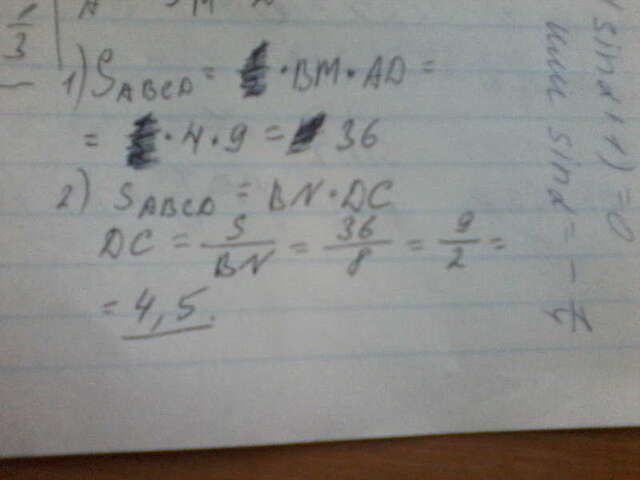 1/3
1) S_ABCD = · BM · AD =
= · 4 · 9 = 36
2) S_ABCD = BN · DC
DC = S/BN = 36/8 = 9/2 =
= 4,5.
sinα + 1) = 0
или sinα = -